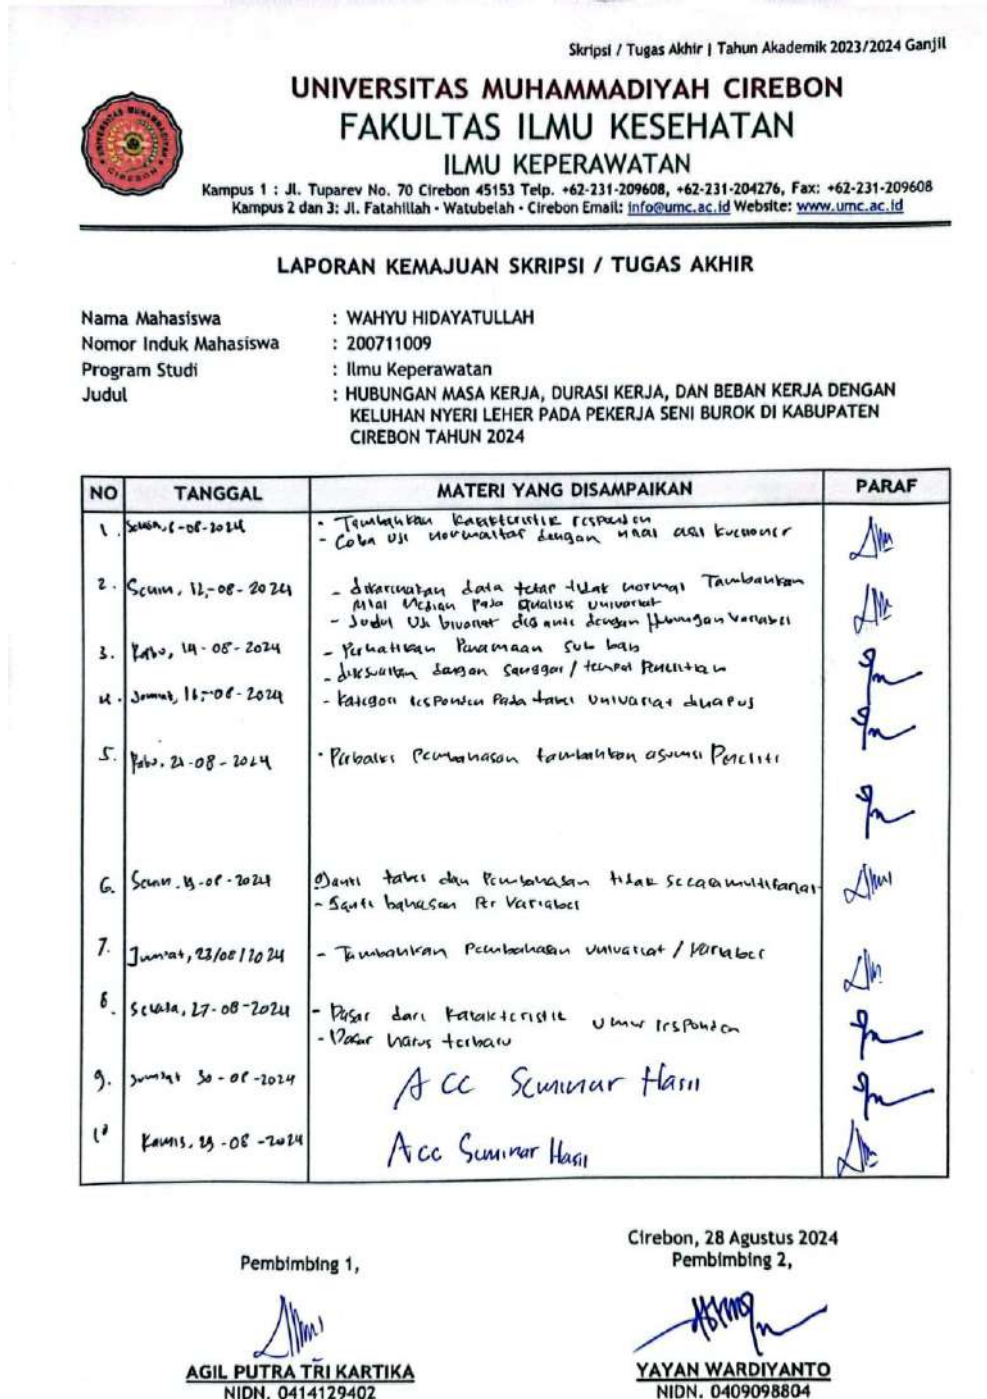 Skripsi / Tugas Akhir | Tahun Akademik 2023/2024 Ganjil
UNIVERSITAS MUHAMMADIYAH CIREBON
FAKULTAS ILMU KESEHATAN
ILMU KEPERAWATAN
Kampus 1 : Jl. Tuparev No. 70 Cirebon 45153 Telp. +62-231-209608, +62-231-204276, Fax: +62-231-209608
Kampus 2 dan 3: Jl. Fatahillah - Watubelah - Cirebon Email: info@umc.ac.id Website: www.umc.ac.id
LAPORAN KEMAJUAN SKRIPSI / TUGAS AKHIR
Nama Mahasiswa : WAHYU HIDAYATULLAH
Nomor Induk Mahasiswa : 200711009
Program Studi : Ilmu Keperawatan
Judul : HUBUNGAN MASA KERJA, DURASI KERJA, DAN BEBAN KERJA DENGAN
KELUHAN NYERI LEHER PADA PEKERJA SENI BUROK DI KABUPATEN
CIREBON TAHUN 2024
NO TANGGAL MATERI YANG DISAMPAIKAN PARAF
1. Senin, - Tambahkan Karakteristik responden
- Coba Uji normalitas dengan nilai asli kuesioner
2. Senin, 12-08-2024 - dikarenakan data tetap tidak normal Tambahkan
nilai Median pada analisis univariat
- Judul Uji bivariat diganti dengan Hubungan Variabel
3. Rabu, 14-08-2024 - Perhatikan Penamaan Sub bab
- disesuaikan dengan Sanggar / tempat Penelitian
4. Jumat, 16-08-2024 - Kategori responden Pada tabel Univariat dihapus
5. Rabu, 21-08-2024 - Perbaiki Pembahasan tambahkan asumsi Peneliti
6. Senin, -08-2024 Ganti tabel dan Pembahasan tidak secara
- Ganti bahasan Per Variabel
7. Jum'at, 23/08/2024 - Tambahkan Pembahasan univariat / Variabel
8. Selasa, 27-08-2024 - Dasar dari Karakteristik Umur responden
- Dasar harus terbaru
9. Jum'at 30-08-2024 ACC Seminar Hasil
10 Kamis, 29-08-2024 Acc Seminar Hasil
Cirebon, 28 Agustus 2024
Pembimbing 1, Pembimbing 2,
AGIL PUTRA TRI KARTIKA YAYAN WARDIYANTO
NIDN. 0414129402 NIDN. 0409098804